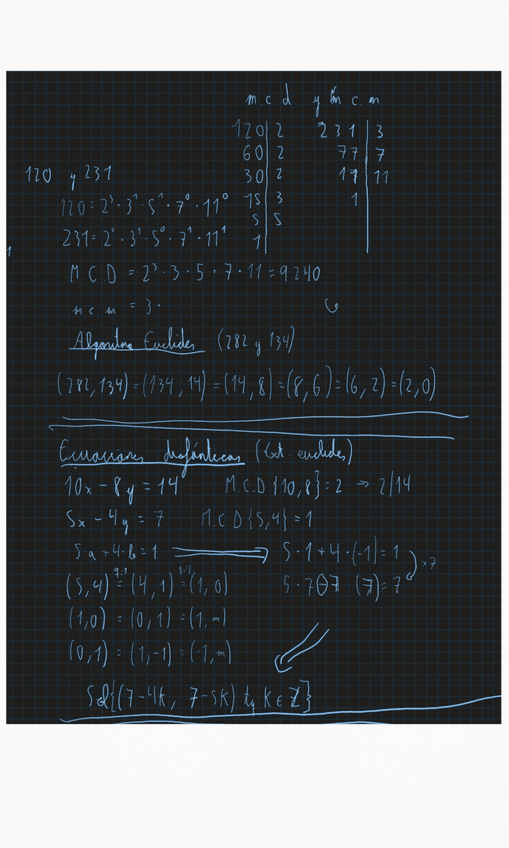 m c d y m c m
120 | 2 231 | 3
60 | 2 77 | 7
30 | 2 11 | 11
15 | 3 1
5 | 5
1
120 y 231
120 = 2³ · 3¹ · 5¹ · 7⁰ · 11⁰
231 = 2⁰ · 3¹ · 5⁰ · 7¹ · 11¹
M C D = 2³ · 3 · 5 · 7 · 11 = 9240
m c m = 3 ·
Algoritmo Euclides (282 y 134)
(282, 134) = (134, 14) = (14, 8) = (8, 6) = (6, 2) = (2, 0)
Ecuaciones diofánticas (Ext. euclides)
10x - 8y = 14 M.C.D {10, 8} = 2 → 2/14
5x - 4y = 7 M.C.D {5, 4} = 1
5a + 4·b = 1 5 · 1 + 4 · (-1) = 1
(5, 4) = (4, 1) = (1, 0) 5 · 7 (7) = 7 x7
(1, 0) = (0, 1) = (1, m)
(0, 1) = (1, -1) = (-1, m)
Sol {(7 - 4K, 7 - 5K) tq K ∈ Z}